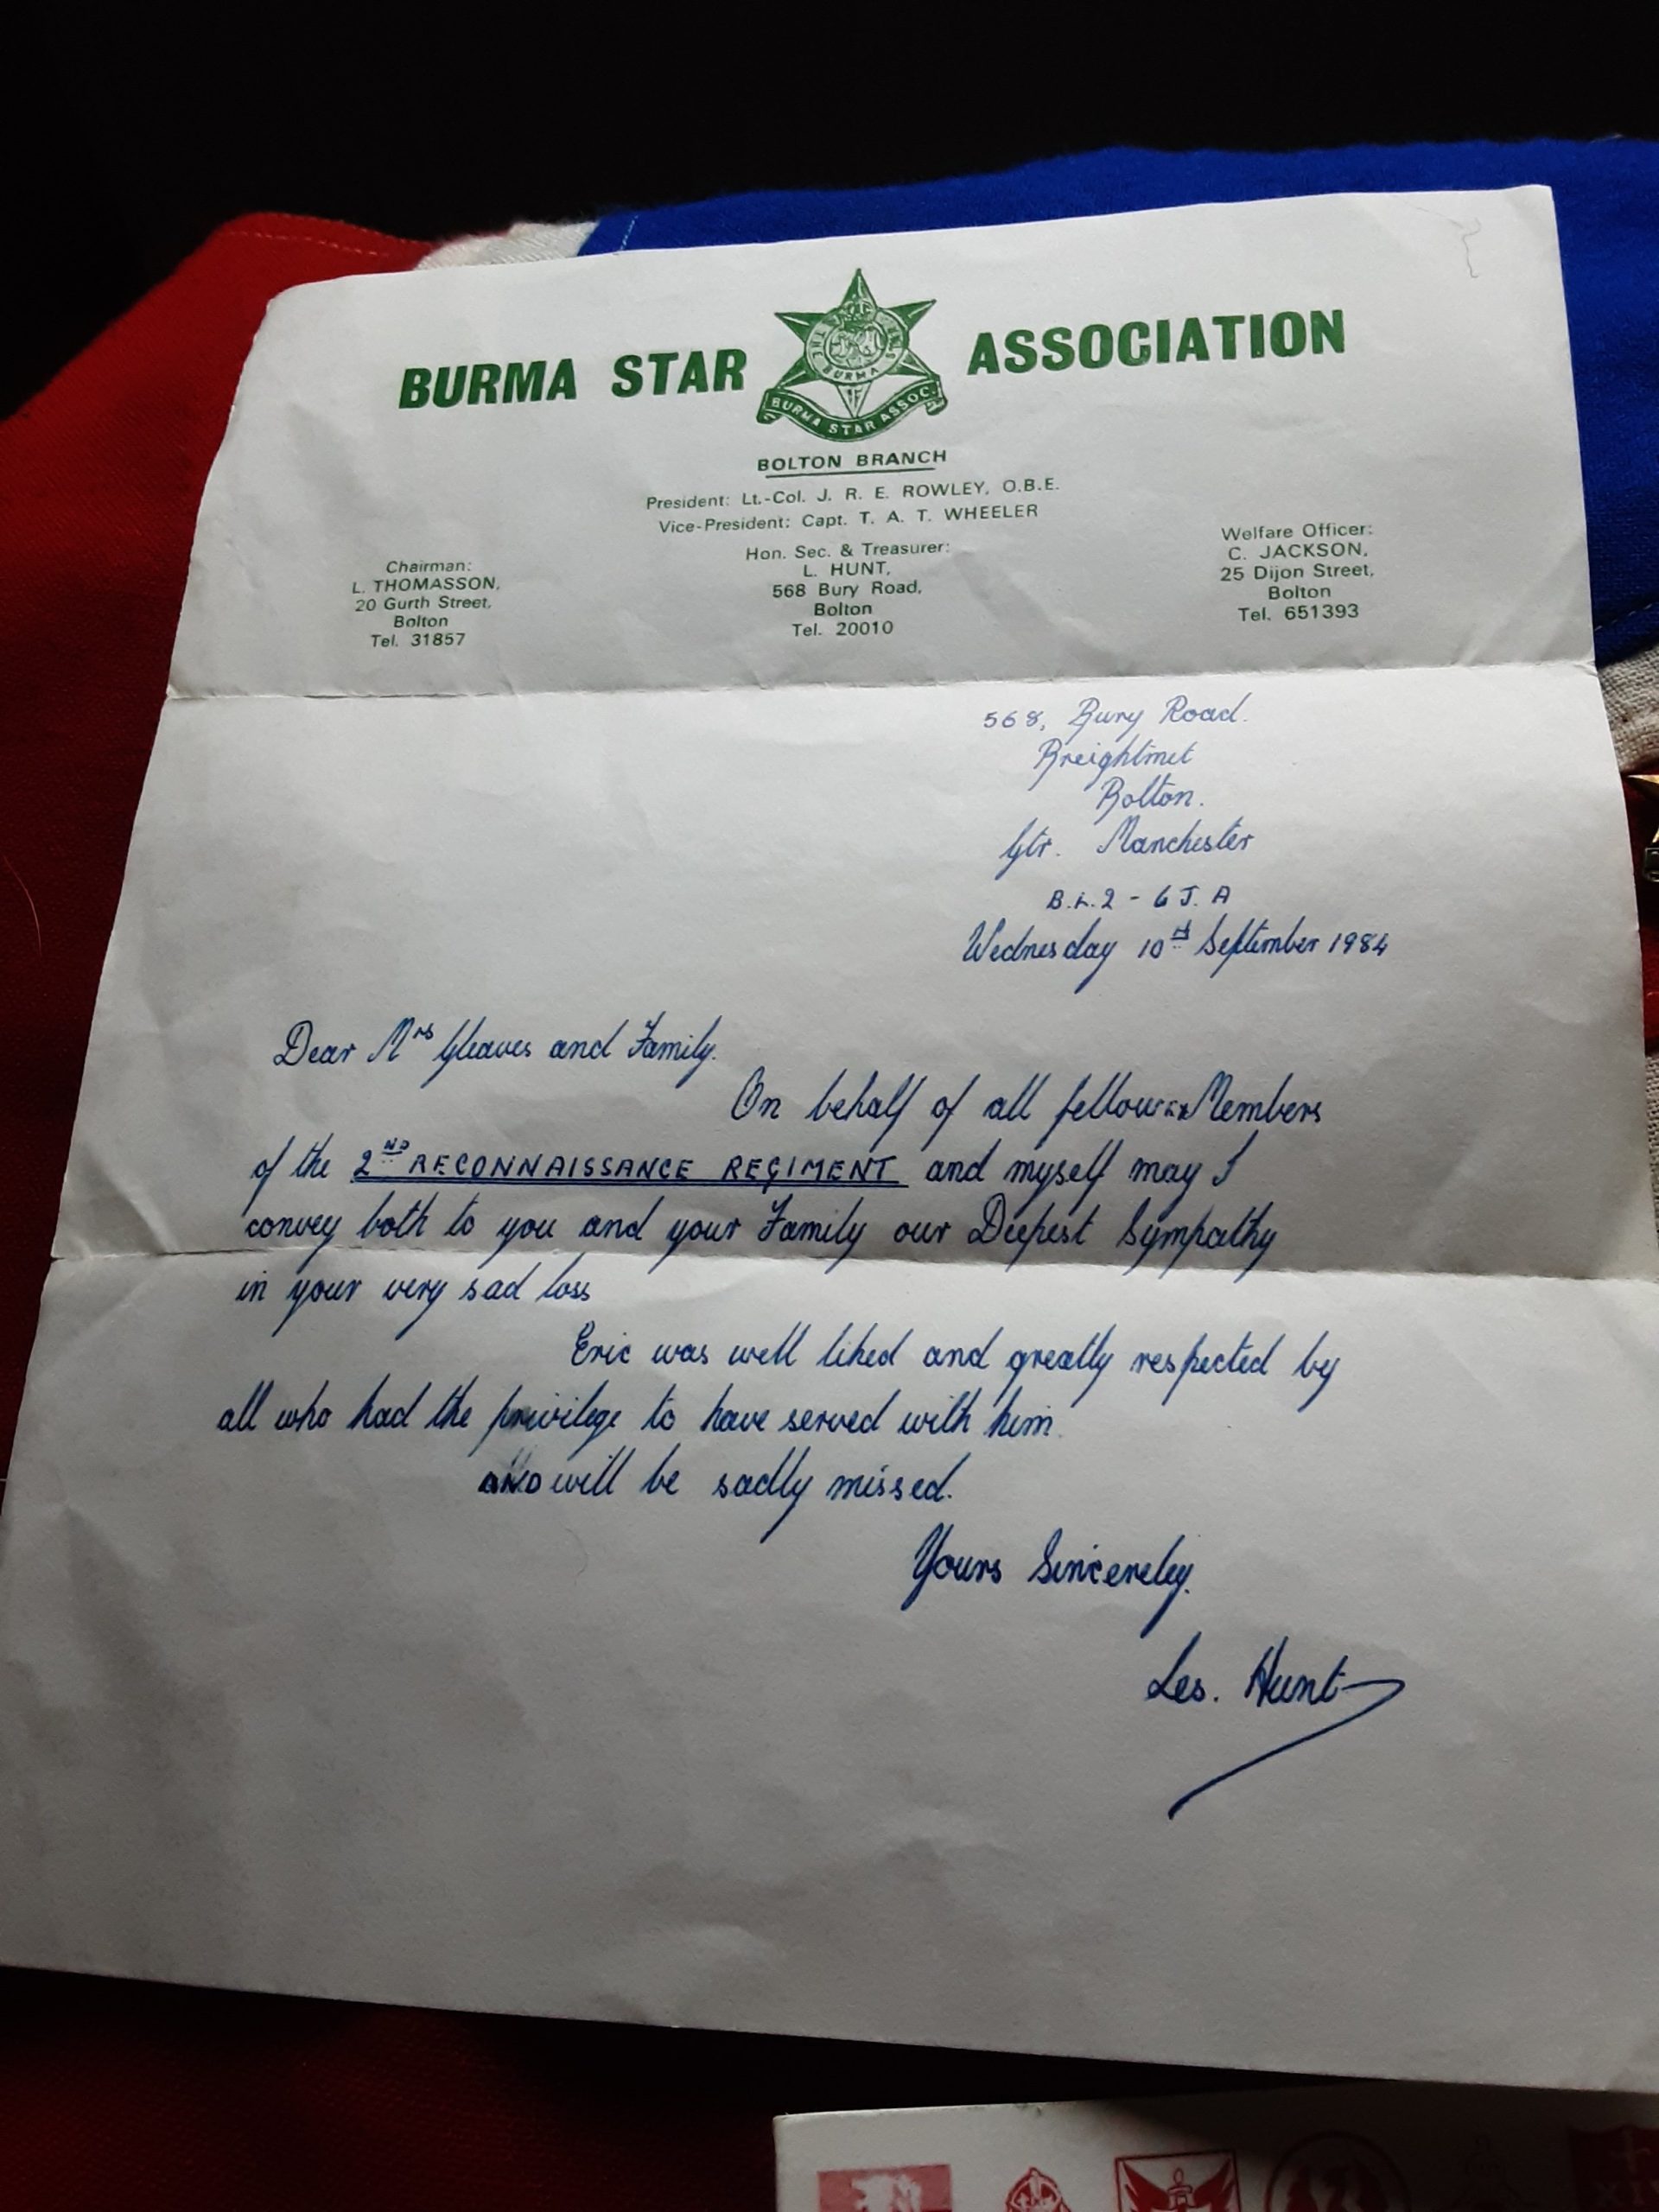 BURMA STAR ASSOCIATION
THE BURMA STAR
BURMA STAR ASSOC.
BOLTON BRANCH
President: Lt.-Col. J. R. E. ROWLEY, O.B.E.
Vice-President: Capt. T. A. T. WHEELER
Chairman:
L. THOMASSON,
20 Gurth Street,
Bolton
Tel. 31857
Hon. Sec. & Treasurer:
L. HUNT,
568 Bury Road,
Bolton
Tel. 20010
Welfare Officer:
C. JACKSON,
25 Dijon Street,
Bolton
Tel. 651393
568, Bury Road.
Breightmet
Bolton.
Gtr. Manchester
B.L.2 - 6 J. A
Wednesday 10th September 1984
Dear Mrs Gleaves and Family.
On behalf of all fellow Members
of the 2ND RECONNAISSANCE REGIMENT and myself may I
convey both to you and your Family our Deepest Sympathy
in your very sad loss
Eric was well liked and greatly respected by
all who had the privilege to have served with him.
AND will be sadly missed.
Yours Sincereley.
Les. Hunt